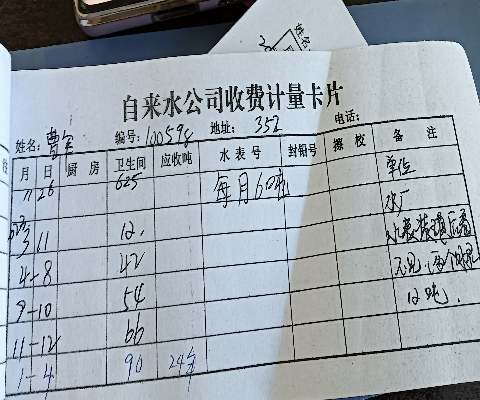 自来水公司收费计量卡片
姓名: 曹 编号: 100598 地址: 352 电话:
月 日 厨 房 卫生间 应收吨 水 表 号 封铅号 擦 校 备 注
11 26 625 每月6吨 单位
水厂
3 11 12. 水表装
4-8 42 不见
9-10 54 12吨.
11-12 66
1-4 90 24
姓名: